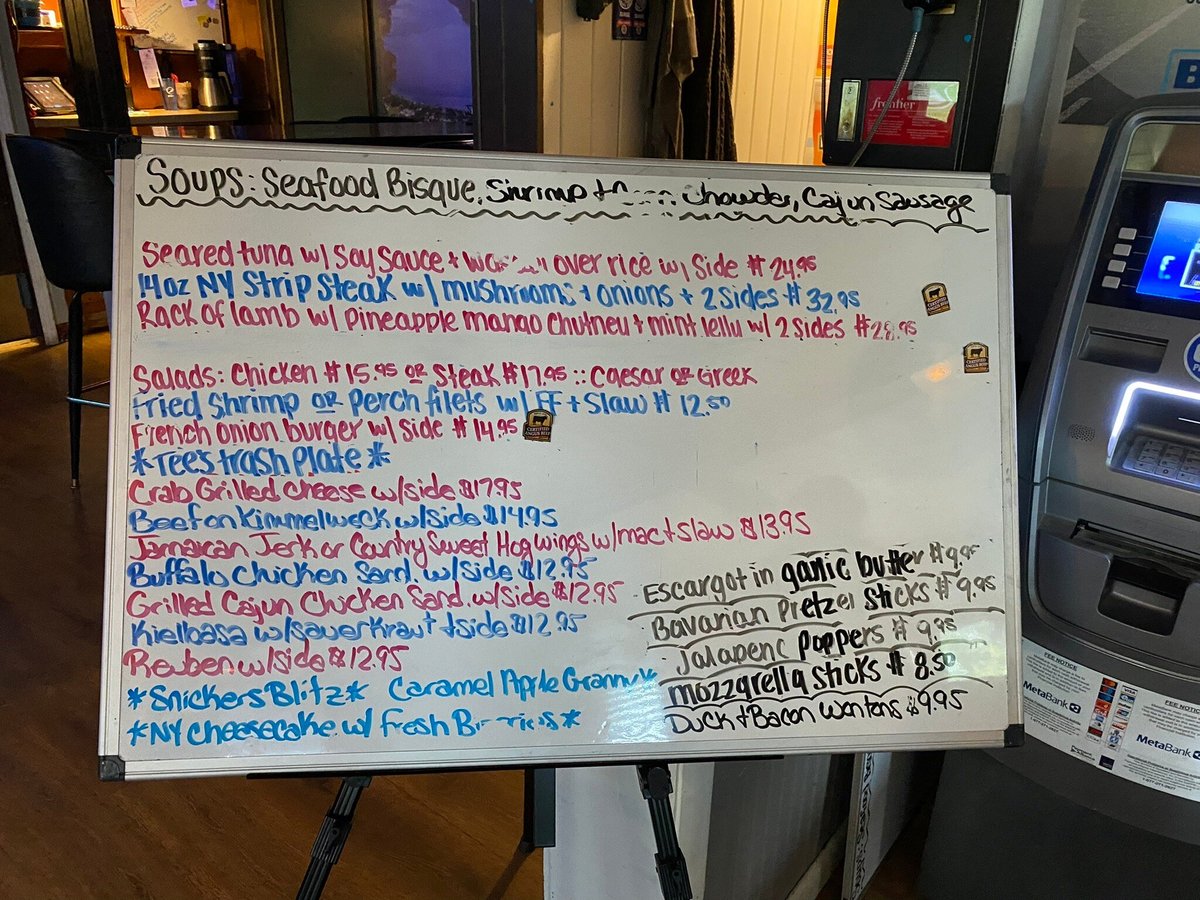 Soups: Seafood Bisque, Shrimp + Chowder, Cajun Sausage
Seared tuna w/ Soy Sauce + over rice w/ Side $24.95
14oz NY Strip Steak w/ mushrooms + onions + 2 sides $32.95
Rack of lamb w/ pineapple mango Chutney + mint Jelly w/ 2 sides $28.95
Salads: Chicken $15.95 or Steak $17.95 :: Caesar or Greek
Fried Shrimp or Perch filets w/ FF + Slaw $12.50
French onion burger w/ Side $14.95
CERTIFIED ANGUS BEEF
*Tee's trash plate*
Crab Grilled Cheese w/side $17.95
Beef on Kimmelweck w/side $14.95
Jamaican Jerk or Country Sweet Hog wings w/mac + slaw $13.95
Buffalo Chicken Sand. w/side $12.95
Grilled Cajun Chicken Sand. w/side $12.95
Kielbasa w/sauerkraut + side $12.95
Reuben w/side $12.95
*Snickers Blitz* Caramel Apple Granny*
*NY cheesecake w/ fresh
Escargot in garlic butter $9.95
Bavarian Pretzel Sticks $9.95
Jalapeno Poppers $9.95
mozzarella sticks $8.50
Duck + Bacon wontons $9.95
frontier
FEE NOTICE
MetaBank
FEE NOTICE
MetaBank
VISA